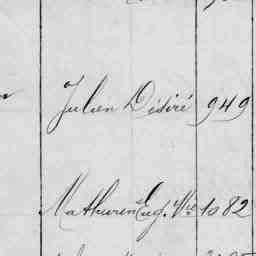 Julien Désiré 949
Mathurin Eug. Vre 1082